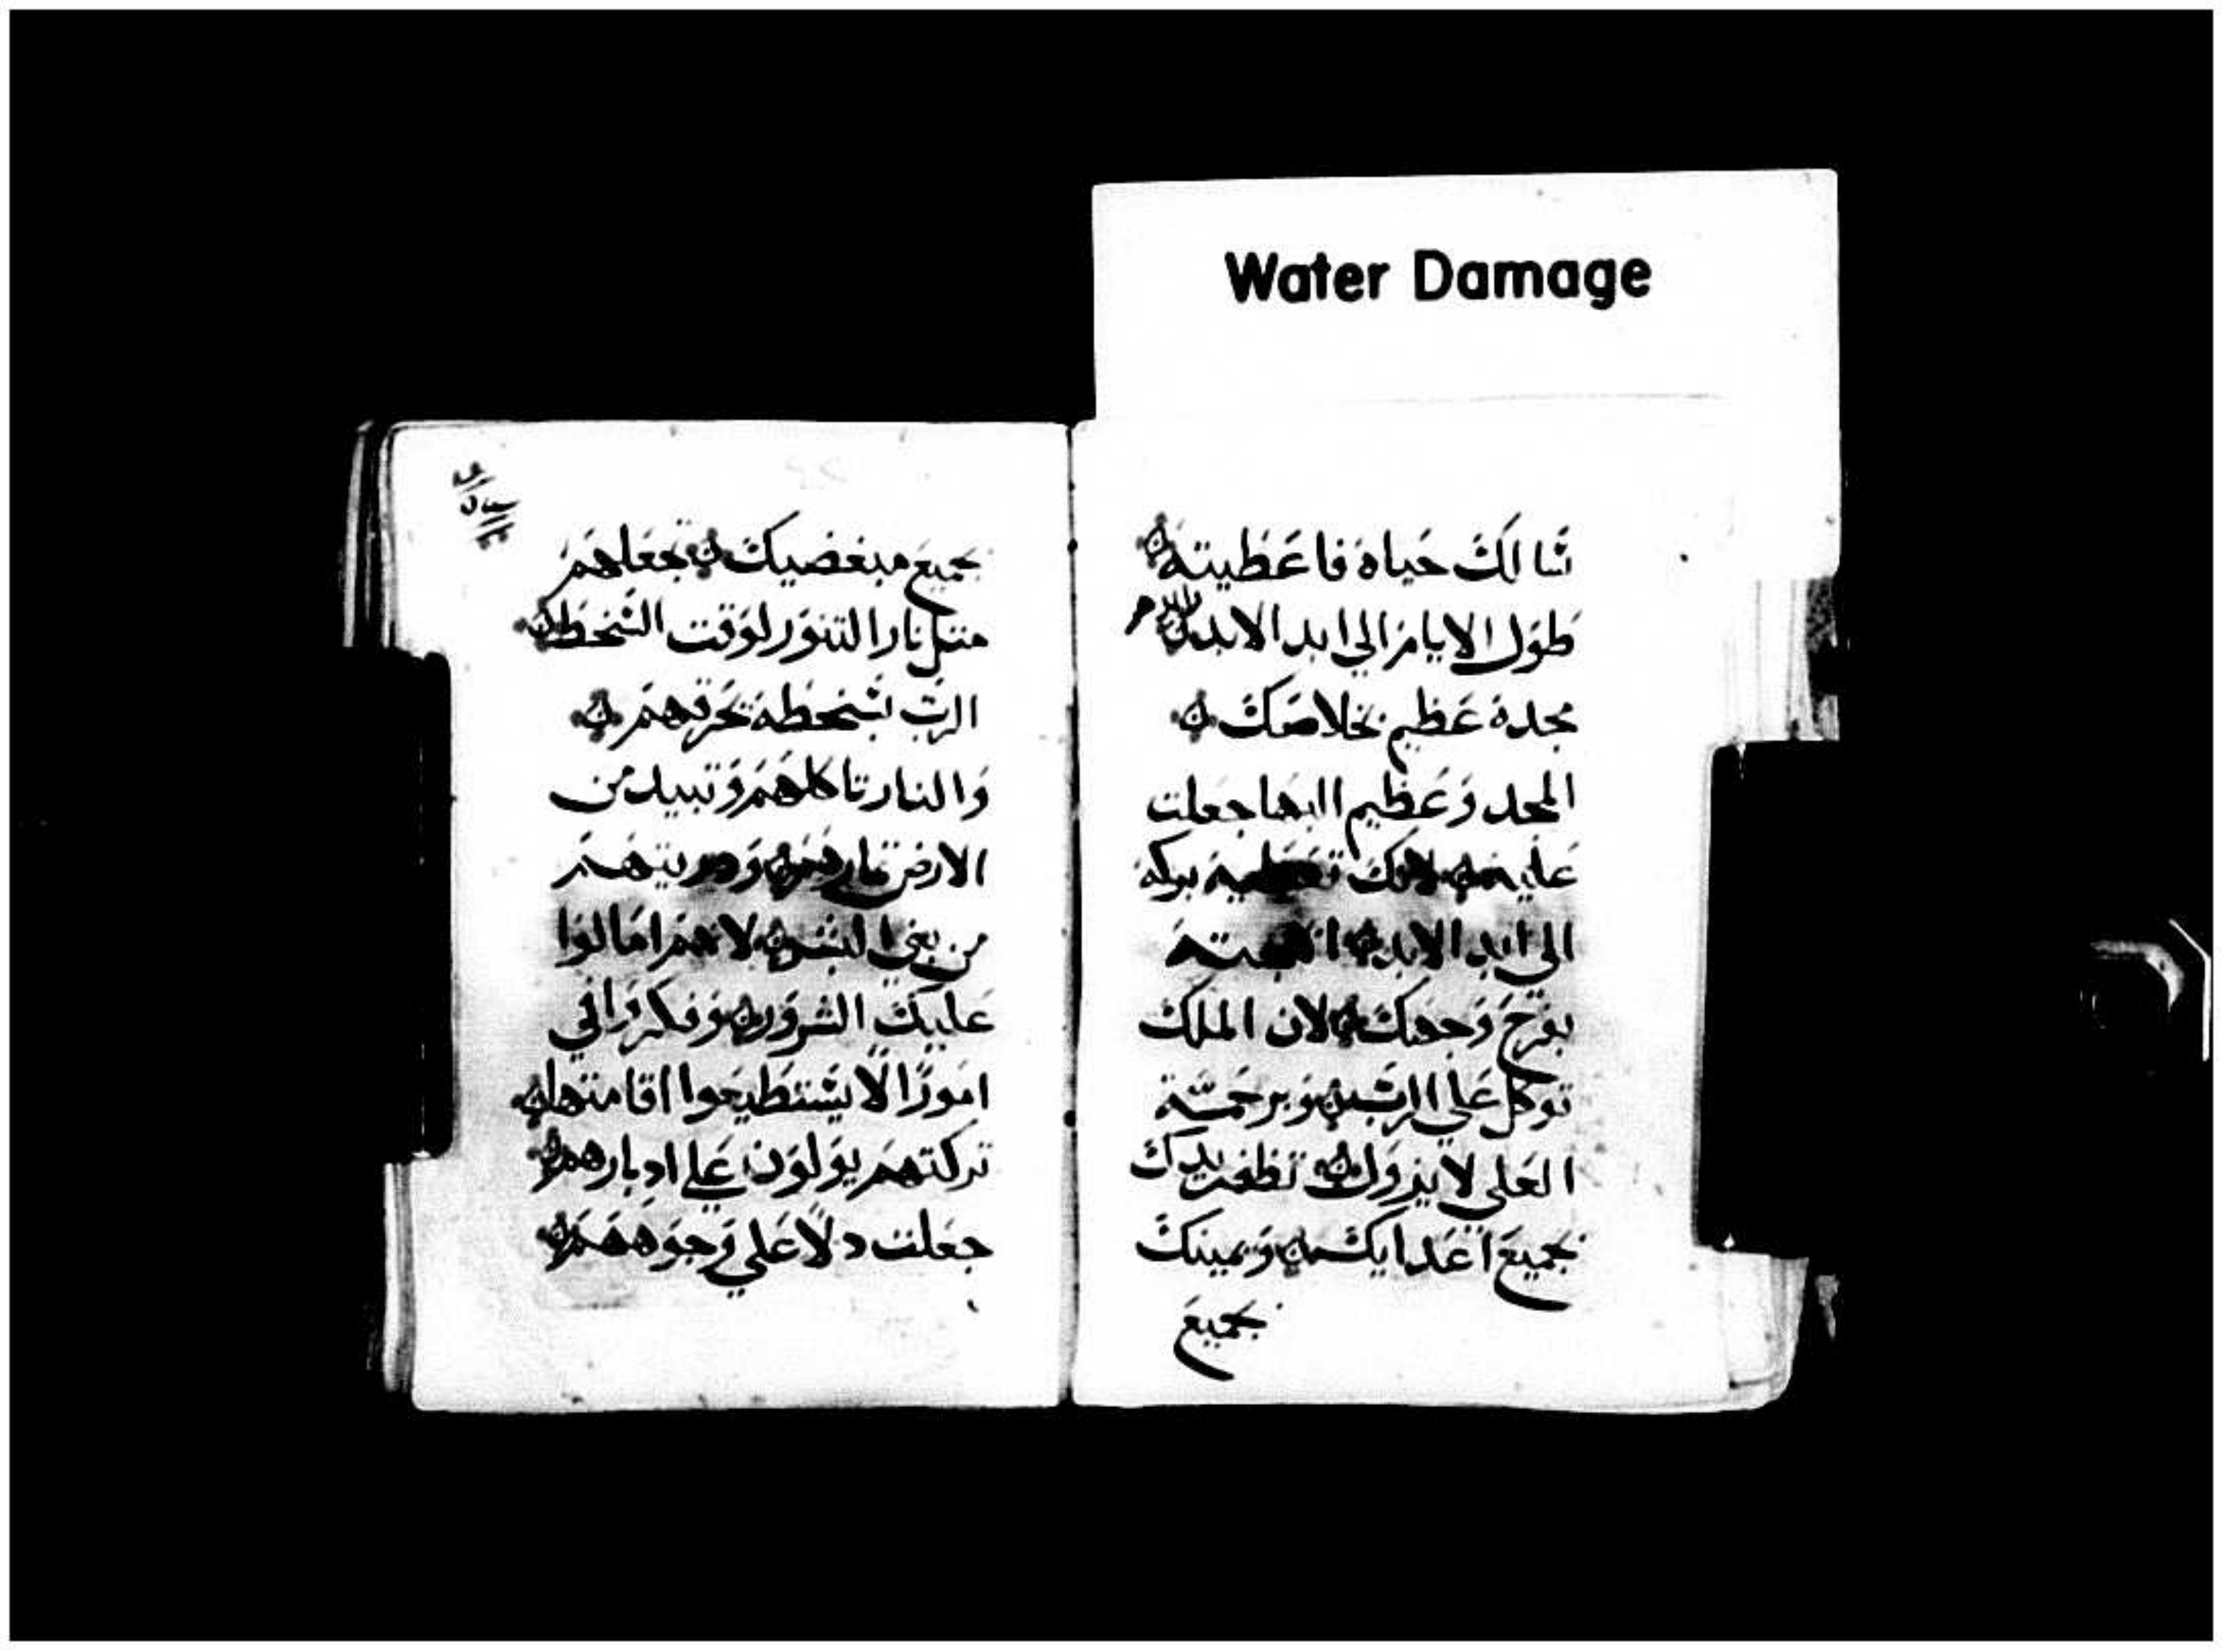 Water Damage
شالك حياة فاعظيته
طول الايام الي ابد الابد
مجدة عظيم بخلاصك
المجد وعظيم البها جعلت
عليه لانك تعطيه بركة
الي ابد الابد ابهجته
بفرح وجهك لان الملك
توكل علي الرب وبرحمة
العلي لا يزول تظفر يدك
بجميع اعدايك ويمينك
بجميع
جميع مبغضيك تجعلهم
مثل نار التنور لوقت السخط
الرب بسخطه تحرقهم
والنار تاكلهم وتبيد من
الارض ثمارهم وذريتهم
من بني البشر لانهم امالوا
عليك الشرور وفكروا في
امورًا لا يستطيعوا اقامتها
تركتهم يولون علي ادبارهم
جعلت دلا علي وجوههم